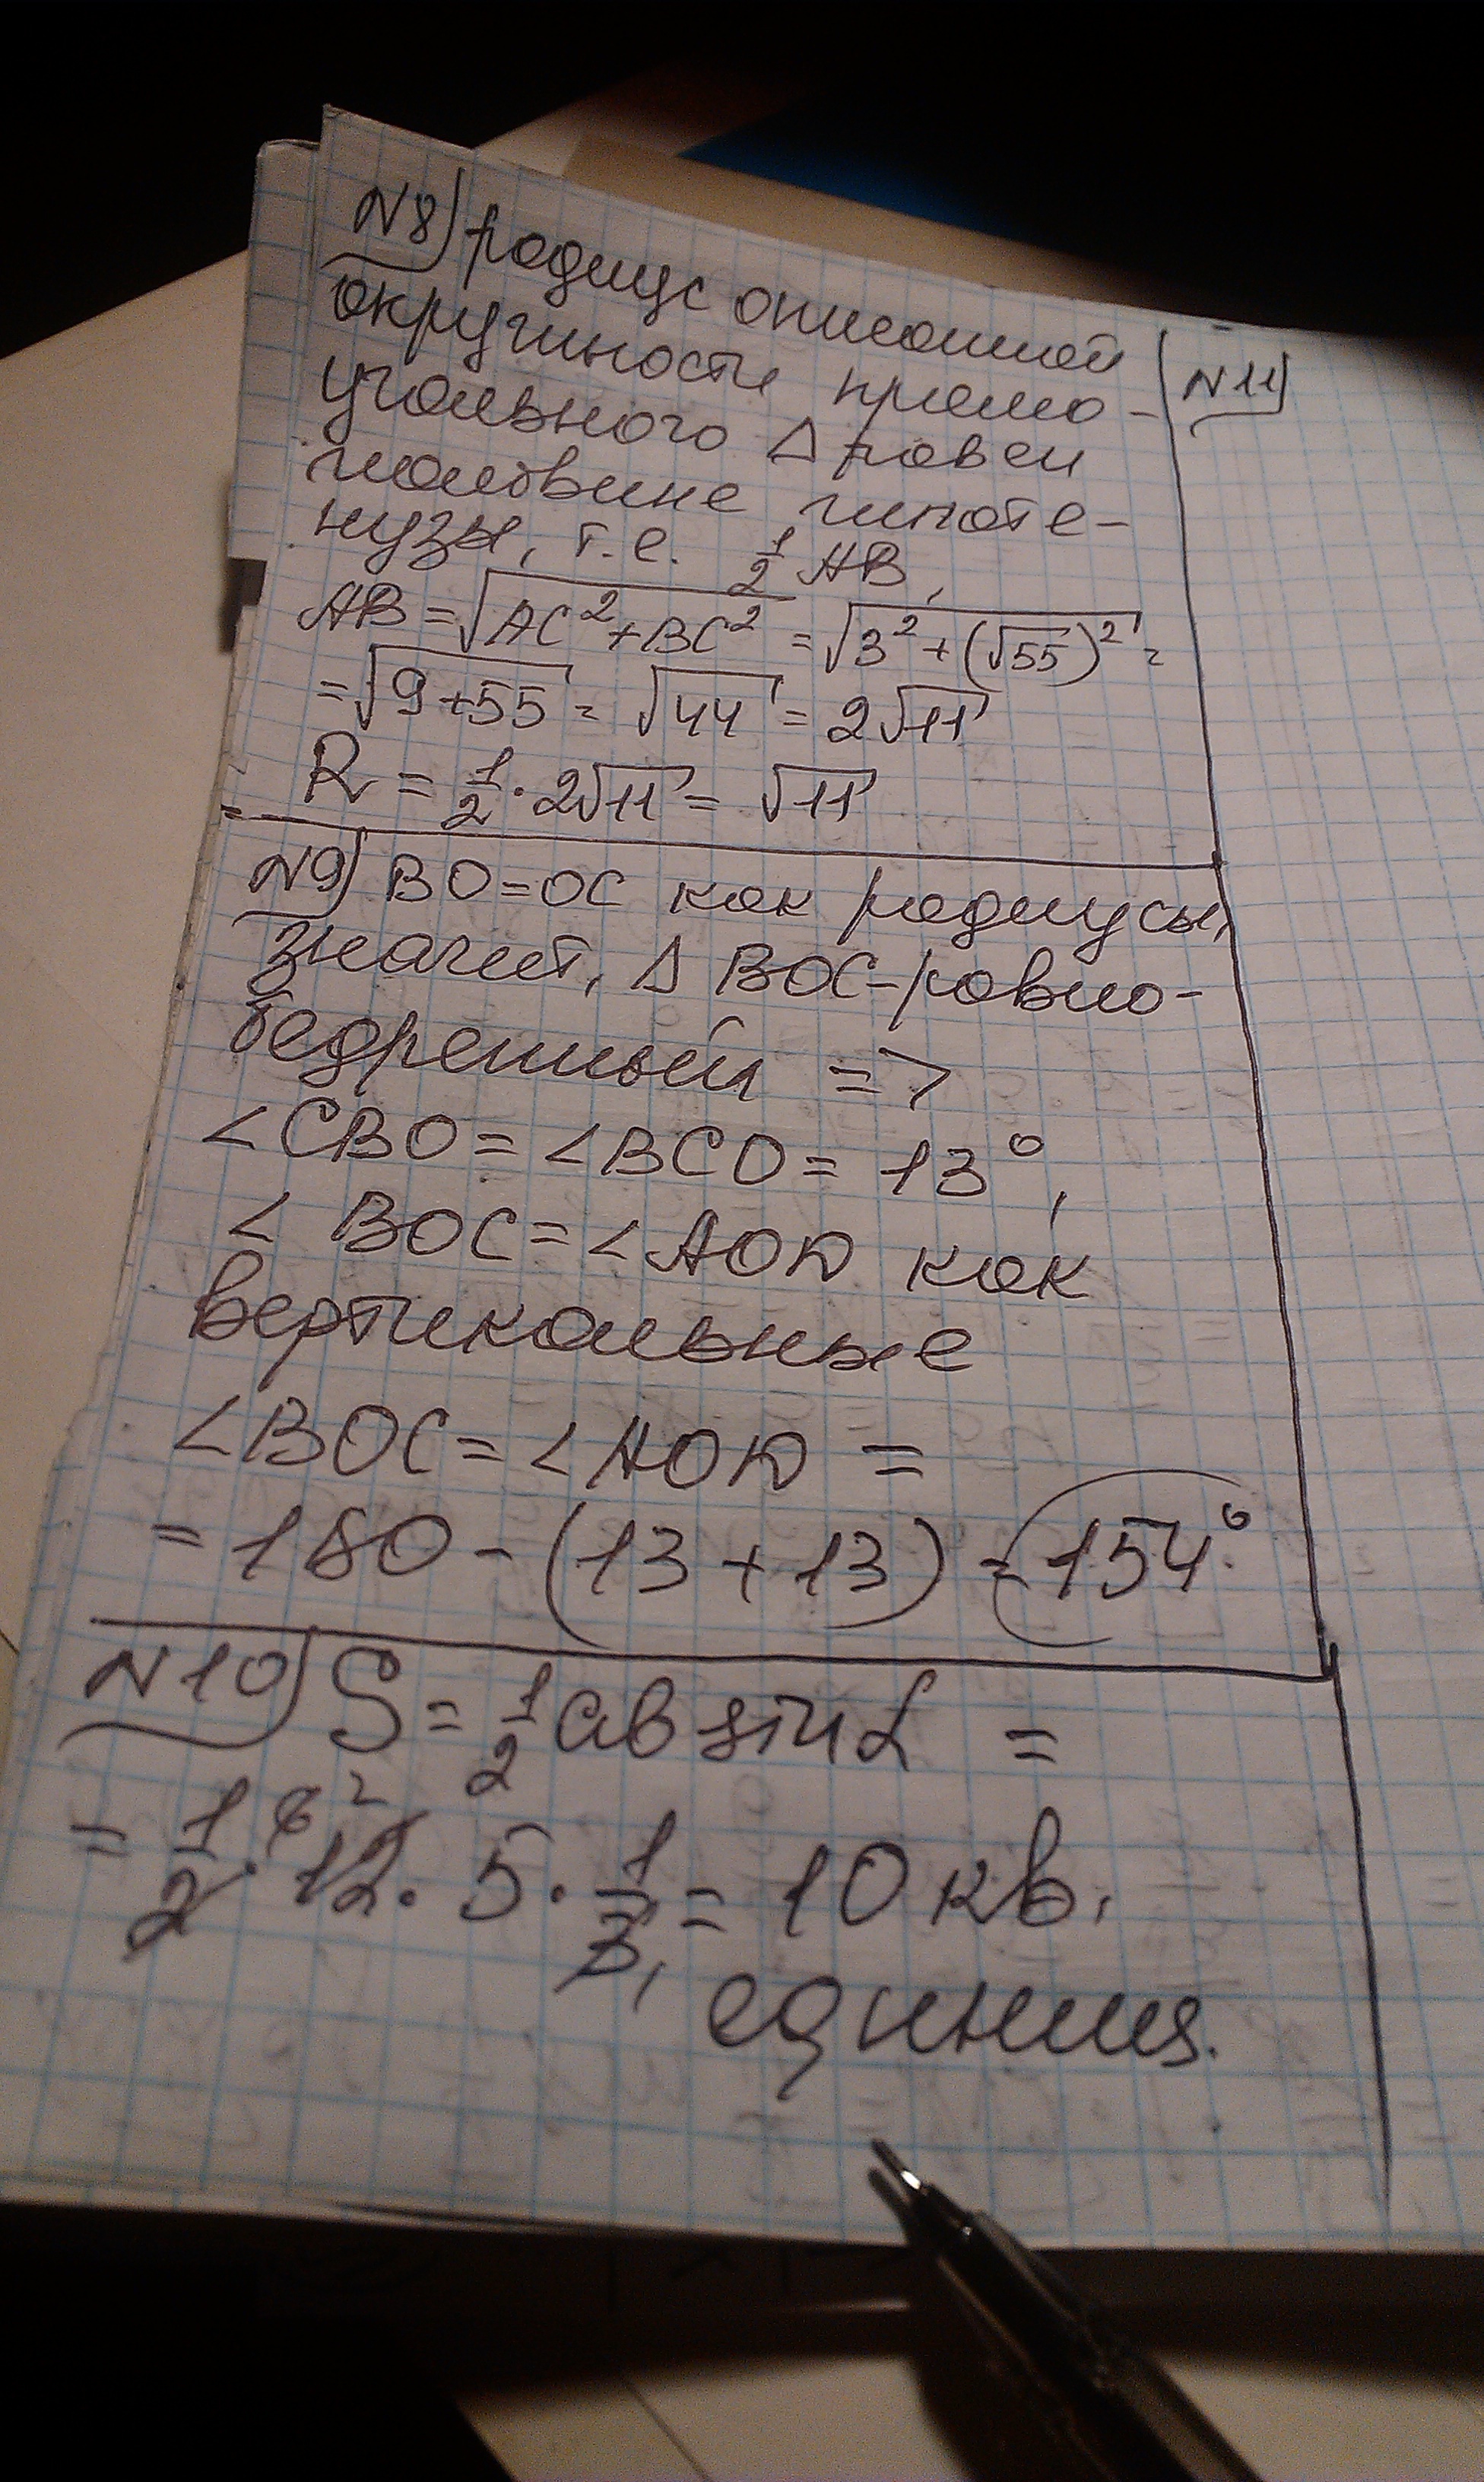 N8) радиус описанной
окружности прямо-
угольного Δ равен
половине гипоте-
нузы, т.е. 1/2 AB,
AB = √(AC² + BC²) = √(3² + (√55)²) =
= √(9+55) = √44 = 2√11
R = 1/2 · 2√11 = √11
N9) BO = OC как радиусы,
значит, Δ BOC - равно-
бедренный =>
∠CBO = ∠BCO = 13°,
∠ BOC = ∠AOD как
вертикальные
∠BOC = ∠AOD =
= 180 - (13 + 13) = 154°.
N10) S = 1/2 ab sin α =
= 1/2 · 12 · 5 · 1/3 = 10 кв.
единиц.
N11)